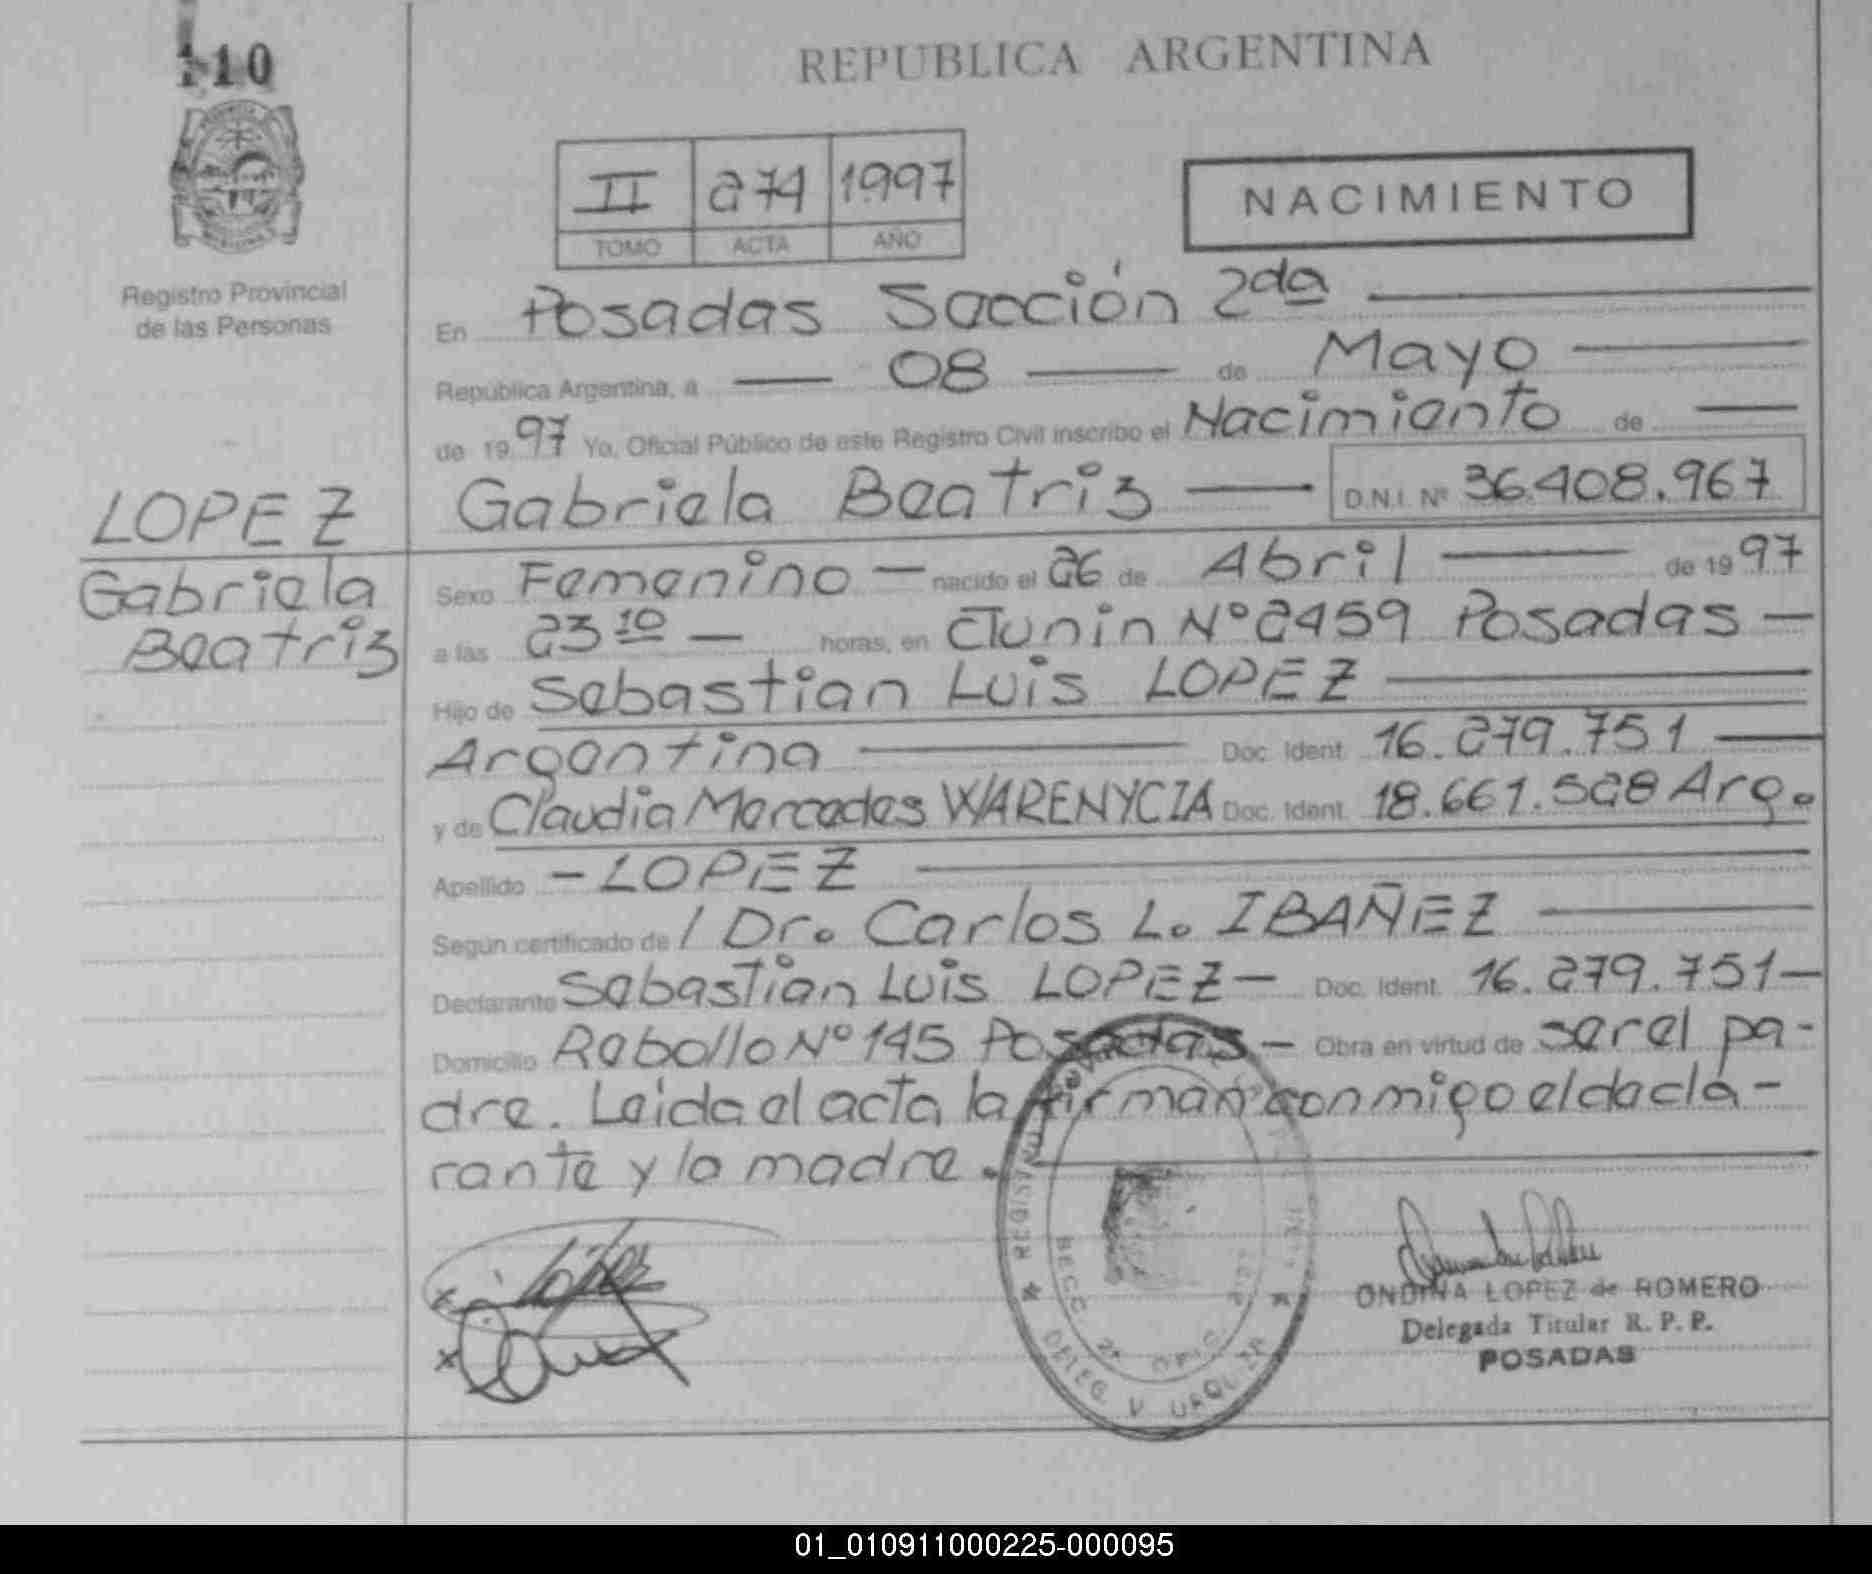 110
REPUBLICA ARGENTINA
II 274 1997
TOMO ACTA AÑO
NACIMIENTO
Registro Provincial
de las Personas
En Posadas Sección 2da
República Argentina, a 08 de Mayo
de 1997 Yo, Oficial Público de este Registro Civil inscribo el Nacimiento de
LOPEZ
Gabriela
Beatriz
Gabriela Beatriz D.N.I. Nº 36.408.967
Sexo Femenino - nacido el 26 de Abril de 1997
a las 23 10 - horas, en Junin Nº 2459 Posadas -
Hijo de Sebastian Luis LOPEZ
Argentina Doc. Ident. 16.279.751
y de Claudia Mercedes WARENYCIA Doc. Ident. 18.661.528 Arg.
Apellido - LOPEZ
Según certificado de / Dr. Carlos L. IBAÑEZ
Declarante Sebastian Luis LOPEZ - Doc. Ident. 16.279.751 -
Domicilio Rebollo Nº 145 Posadas - Obra en virtud de ser el pa-
dre. Leida el acta, la firman conmigo el decla-
rante y la madre.
SECC. 2ª
DELEG. V. URQUIZA
ONDINA LOPEZ de ROMERO
Delegada Titular R. P. P.
POSADAS
01_010911000225-000095